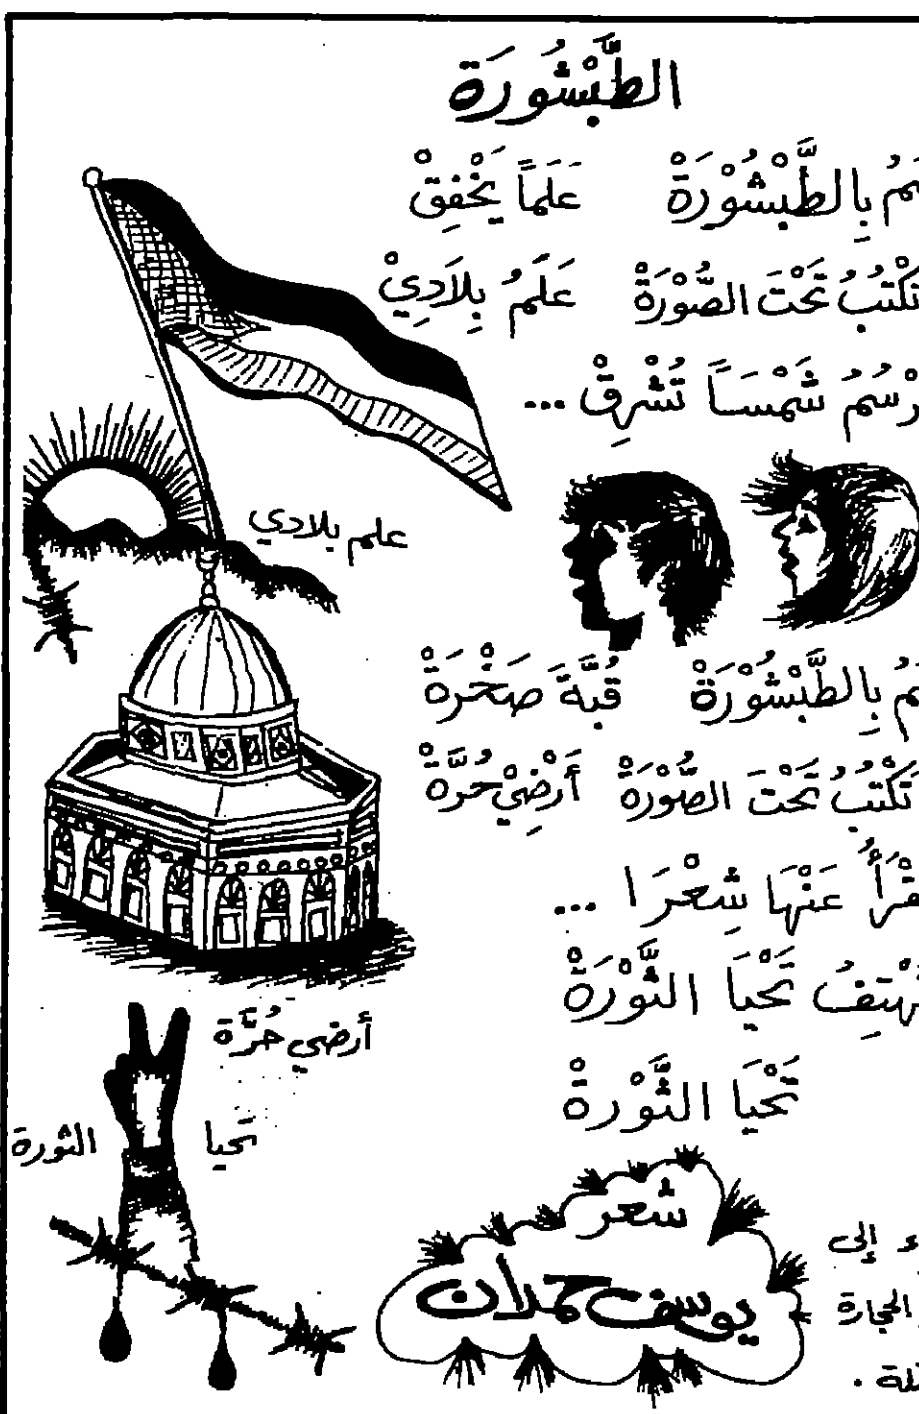 الطَّبْشُورَة
بِالطَّبْشُوْرَةْ عَلَمَاً يَخْفِقْ
تَكْتُبُ تَحْتَ الصُّوْرَةْ عَلَمُ بِلَادِيْ
شَمْسَاً تُشْرِقْ ...
علم بلادي
بِالطَّبْشُوْرَةْ قُبَّةَ صَخْرَةْ
تَكْتُبُ تَحْتَ الصُّوْرَةْ أَرْضِيْ حُرَّةْ
عَنْهَا شِعْرَا ...
تَحْيَا الثَّوْرَةْ
أرضي حُرَّة
تَحْيَا الثَّوْرَةْ
تحيا الثورة
شعر
يوسف حمدان
إلى
الحجارة